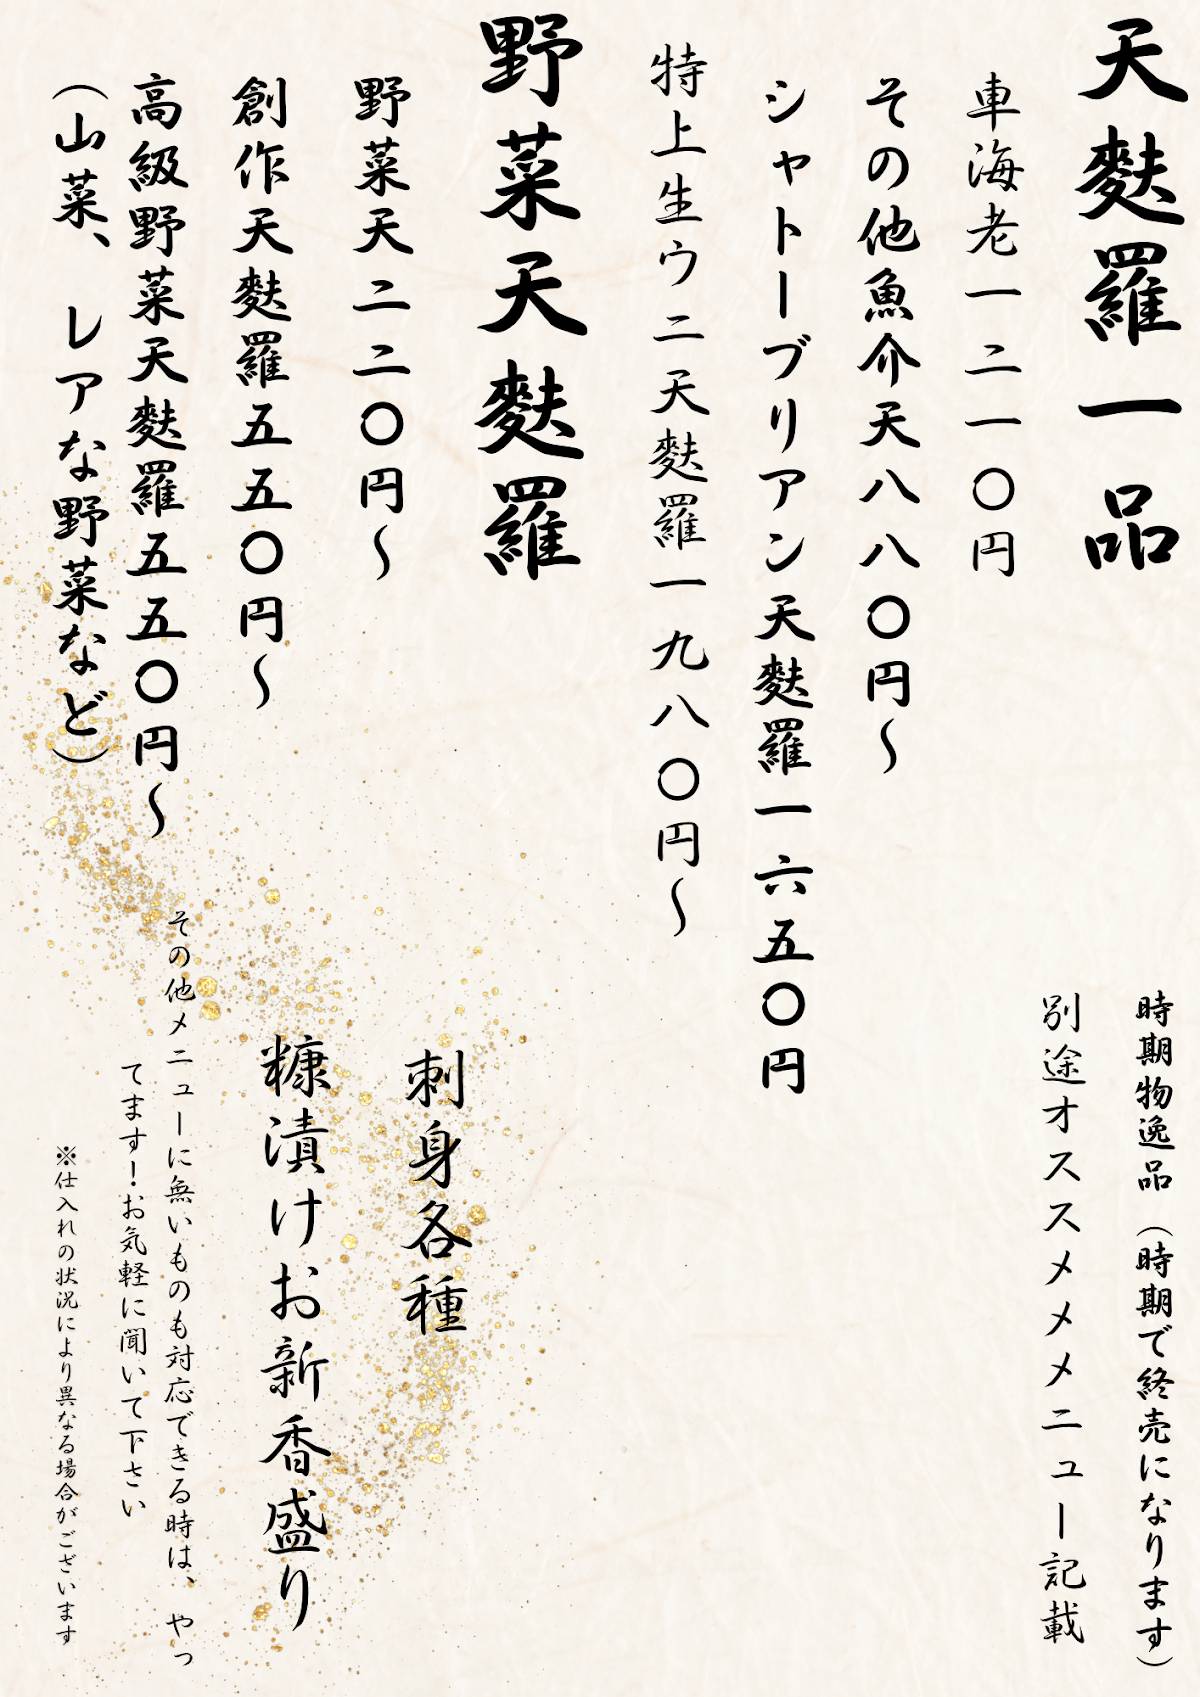 天麩羅一品
車海老一二一〇円
その他魚介天八八〇円〜
シャトーブリアン天麩羅一六五〇円
特上生ウニ天麩羅一九八〇円〜
野菜天麩羅
野菜天二二〇円〜
創作天麩羅五五〇円〜
高級野菜天麩羅五五〇円〜
(山菜、レアな野菜など)
時期物逸品(時期で終売になります)
別途オススメメメニュー記載
刺身各種
糠漬けお新香盛り
その他メニューに無いものも対応できる時は、やっ
てます!お気軽に聞いて下さい
※仕入れの状況により異なる場合がございます